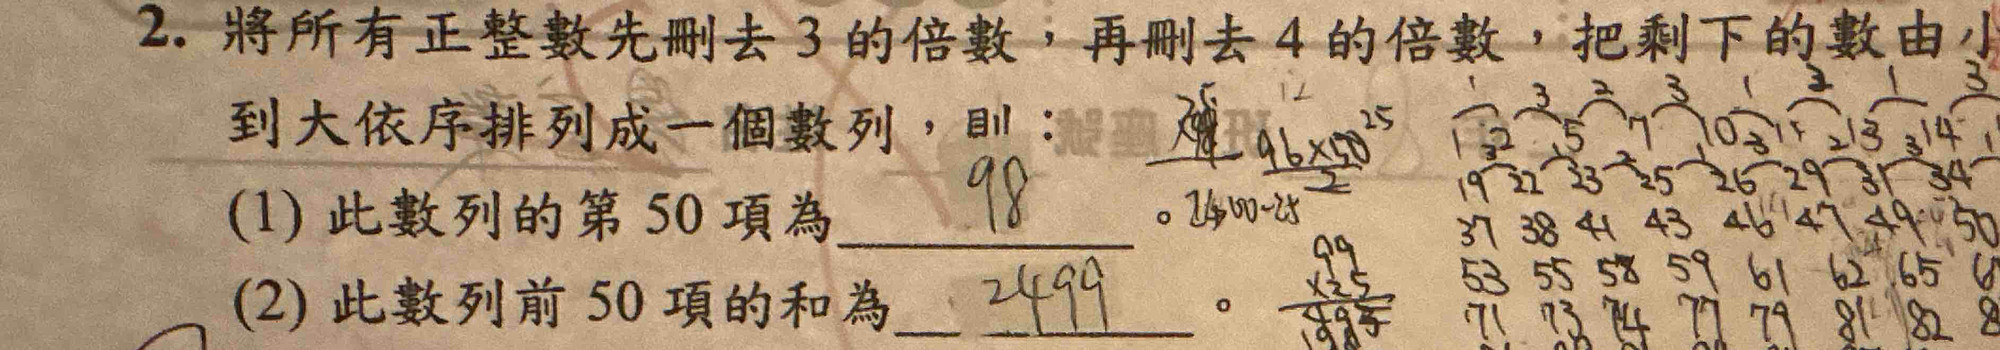 2. 將所有正整數先刪去 3 的倍數，再刪去 4 的倍數，把剩下的數由小
到大依序排列成一個數列，則：
(1) 此數列的第 50 項為 98 。
(2) 此數列前 50 項的和為 2499 。
96×50 25
2
2400-25
99
×25
1 3 2 3 1 2 1 3
1 2 5 7 10 11 13 14
19 22 23 25 26 29 31 34
37 38 41 43 46 47 49 50
53 55 58 59 61 62 65
71 73 74 77 79 81 82